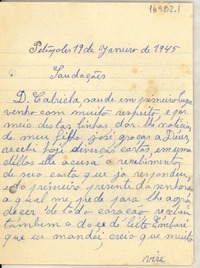 16902.1
Petrópolis 19 de Janeiro de 1945
Saudações
D. Gabriela, saude em primeiro lugar
venho com muito respeito, e por
meio destas linhas dar noticias
de meu filho José graças a Deus,
recebi hoje diversas cartas, em uma
dellas elle acusa o recebimento
de seu carta que já respondeu,
do primeiro presente da senhora
a qual me pede para lhe agra
decer de todo coração recebeu
tambem a do
que eu mandei creio que muito
vive